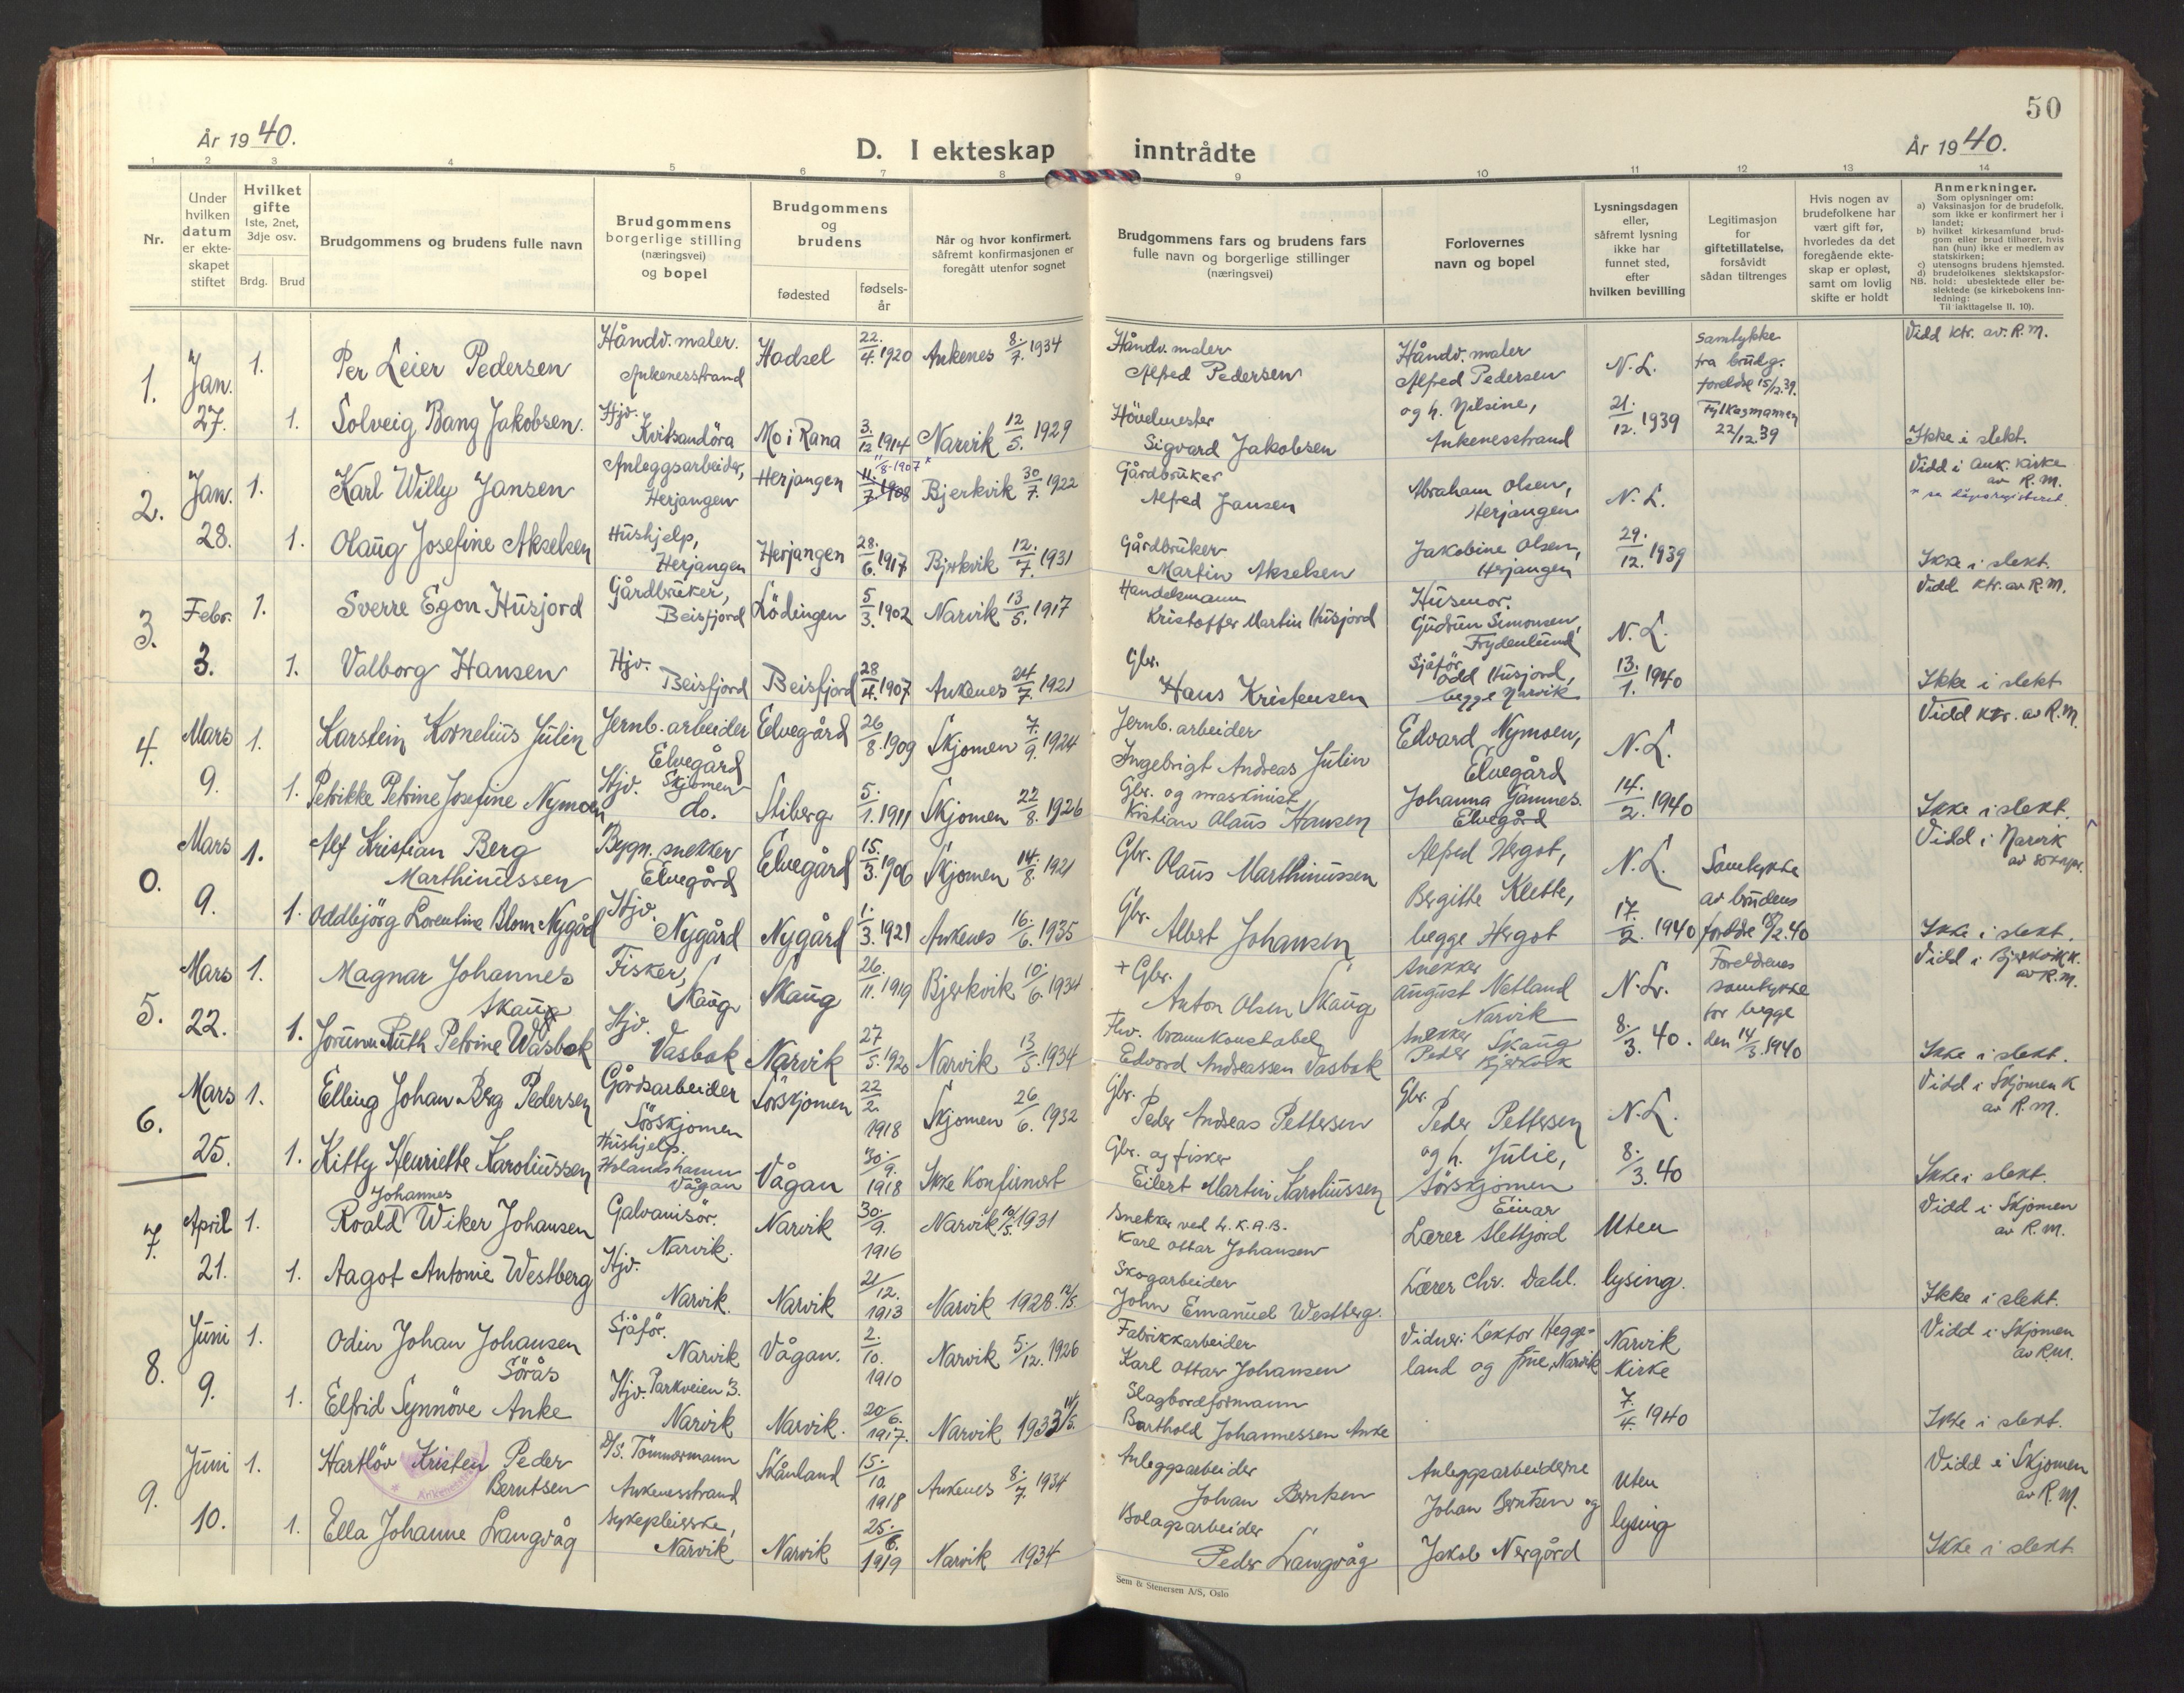 50
År 1940.
D. I ekteskap inntrådte
År 1940.
1 2 3 4 5 6 7 8 9 10 11 12 13 14
Nr.
Under hvilken datum er ekte-skapet stiftet
Hvilket gifte
1ste, 2net, 3dje osv.
Brdg. Brud
Brudgommens og brudens fulle navn
Brudgommens borgerlige stilling (næringsvei) og bopel
Brudgommens og brudens
fødested
fødsels-år
Når og hvor konfirmert, såfremt konfirmasjonen er foregått utenfor sognet
Brudgommens fars og brudens fars fulle navn og borgerlige stillinger (næringsvei)
Forlovernes navn og bopel
Lysningsdagen eller, såfremt lysning ikke har funnet sted, efter hvilken bevilling
Legitimasjon for giftetillatelse, forsåvidt sådan tiltrenges
Hvis nogen av brudefolkene har vært gift før, hvorledes da det foregående ekte-skap er opløst, samt om lovlig skifte er holdt
Anmerkninger.
Som oplysninger om:
a) Vaksinasjon for de brudefolk, som ikke er konfirmert her i landet;
b) hvilket kirkesamfund brud-gom eller brud tilhører, hvis han (hun) ikke er medlem av statskirken;
c) utensogns brudens hjemsted.
d) brudefolkenes slektskapsfor-hold: ubeslektede eller be-slektede (se kirkebokens Inn-ledning:
NB.
Til iakttagelse II, 10).
1. Jan. 27. 1. Per Leier Pedersen Håndv. maler. Ankenesstrand Hadsel 22/4. 1920 Ankenes 8/7. 1934 Håndv. maler Alfred Pedersen Håndv. maler Alfred Pedersen N.L. Samtykke fra brudg. foreldre 15/12.39. Vidd ktr. av R.M.
1. Solveig Bang Jakobsen. Hjv. Kvitsandöra Mo i Rana 3/12 1914 Narvik 12/5. 1929 Hövedmester Sigvard Jakobsen og h. Nilsine, Ankenesstrand 21/12. 1939 Fylkesmannen 22/12 39 Ikke i slekt.
2. Jan. 28. 1. Karl Willy Jansen Anleggsarbeider, Herjangen Herjangen 11/7 1908 11/8-1907* Bjerkvik 30/7. 1922 Gårdbruker Alfred Jansen Abraham Olsen, Herjangen N.L. Vidd i Ank. Kirke av R.M.
* se dåpsregisteret
1. Olaug Josefine Akselsen Hushjelp, Herjangen Herjangen 28/6. 1917 Bjerkvik 12/7. 1931 Gårdbruker Martin Akselsen Jakobine Olsen, Herjangen 29/12. 1939 Ikke i slekt.
3. Febr. 3. 1. Sverre Egon Husjord Gårdbruker, Beisfjord Lödingen 5/3. 1902 Narvik 13/5. 1917 Handelsmann Kristoffer Martin Husjord Husmor. Gudrun Simonsen, Frydenlund N.L. Vidd. ktr. av R.M.
1. Valborg Hansen Hjv. Beisfjord Beisfjord 28/4. 1907 Ankenes 24/7. 1921 Gbr. Hans Kristensen Sjåför Odd Husjord, begge Narvik 13/1. 1940 Ikke i slekt
4. Mars 9. 1. Karstein Kornelius Julin Jernb. arbeider Elvegård Skjomen Elvegård 26/8. 1909 Skjomen 7/9. 1924 Jernb. arbeider Ingebrigt Andreas Julin Edvard Nymoen, Elvegård N.L. Vidd ktr. av R.M.
1. Petrikke Petrine Josefine Nymoen Hjv. do. Stiberg 5/1. 1911 Skjomen 22/8. 1926 Gbr. og maskinist Kristian Olaus Hansen Johanna Gamnes. Elvegård 14/2. 1940 Ikke i slekt.
0. Mars 9. 1. Alf Kristian Berg Marthinussen Bygn. snekker Elvegård Elvegård 15/3. 1906 Skjomen 14/8. 1921 Gbr. Olaus Marthinussen Alfred Hergot, N.L. Samtykke Vidd i Narvik av sokepr.
1. Oddbjörg Lorentine Blom Nygård Hjv. Nygård Nygård 1/3. 1921 Ankenes 16/6. 1935 Gbr. Albert Johansen Bergitte Klette, begge Hergot 17/2. 1940 av brudens foreldre 18/2. 40 Ikke i slekt.
5. Mars 22. 1. Magnar Johannes Skaug Fisker, Skaug Skaug 26/11. 1919 Bjerkvik 10/6. 1934 + Gbr. Anton Olsen Skaug Snekker August Natland Narvik N.L. Foreldrenes samtykke Vidd i Bjerkvik K. av R.M.
1. Jorunn Ruth Petrine Wasbak Hjv. Vasbak Narvik 27/5. 1920 Narvik 13/5. 1934 Fhv. brannkonstabel Edvard Andreassen Vasbak Snekker Peder Skaug Bjerkvik 8/3. 40. for begge den 14/3. 1940 Ikke i slekt.
6. Mars 25. 1. Elling Johan Berg Pedersen Gårdsarbeider Sörskjomen Sörskjomen 22/2 1918 Skjomen 26/6. 1932 Gbr. Peder Andreas Pettersen Gbr. Peder Pettersen N.L. Vidd i Skjomen K av R.M.
1. Kitty Henriette Karoliussen Hushjelp. Holandshamn Vågan Vågan 30/9. 1918 Ikke Konfirmert Gbr. og fisker Eilert Martin Karoliussen og h. Julie, Sörskjomen 8/3. 40 Ikke i slekt.
7. April 21. 1. Roald Johannes Wiker Johansen Galvanisör. Narvik. Narvik 30/9. 1916 Narvik 10/5. 1931 Snekker ved L.K.A.B. Karl Ottar Johansen Lærer Einar Slettjord Uten Vidd i Skjomen av R.M.
1. Aagot Antonie Westberg Hjv. Narvik. Narvik 21/12. 1913 Narvik 1928. 13/5. Skogarbeider John Emanuel Westberg. Lærer Chr. Dahl. lysing. Ikke i slekt.
8. Juni 9. 1. Odin Johan Johansen Sörås Sjåför. Narvik Vågan. 2/10. 1910 Narvik 5/12. 1926 Fabrikkarbeider Karl Ottar Johansen Vidner: Lektor Heggeland og frue, Narvik Narvik Kirke Vidd i Skjomen av R.M.
1. Elfrid Synnöve Anke Hjv. Parkveien 3. Narvik Narvik. 20/6. 1917. Narvik 1933 14/5. Slagbordformann Barthold Johannessen Anke 7/4. 1940 Ikke i slekt.
9. Juni 10. 1. Hartlöv Kristen Peder Berntsen D/S. Tömmermann Ankenesstrand Skånland 15/10. 1918 Ankenes 8/7. 1934 Anleggsarbeider Johan Berntsen Anleggsarbeiderne Johan Berntsen og Uten Vidd i Skjomen av R.M.
1. Ella Johanne Langvåg Sykepleierske, Narvik Narvik 25/6. 1919 Narvik 1934 Bolagsarbeider Peder Langvåg Jakob Nergård lysing Ikke i slekt
Sem & Stenersen A/S, Oslo